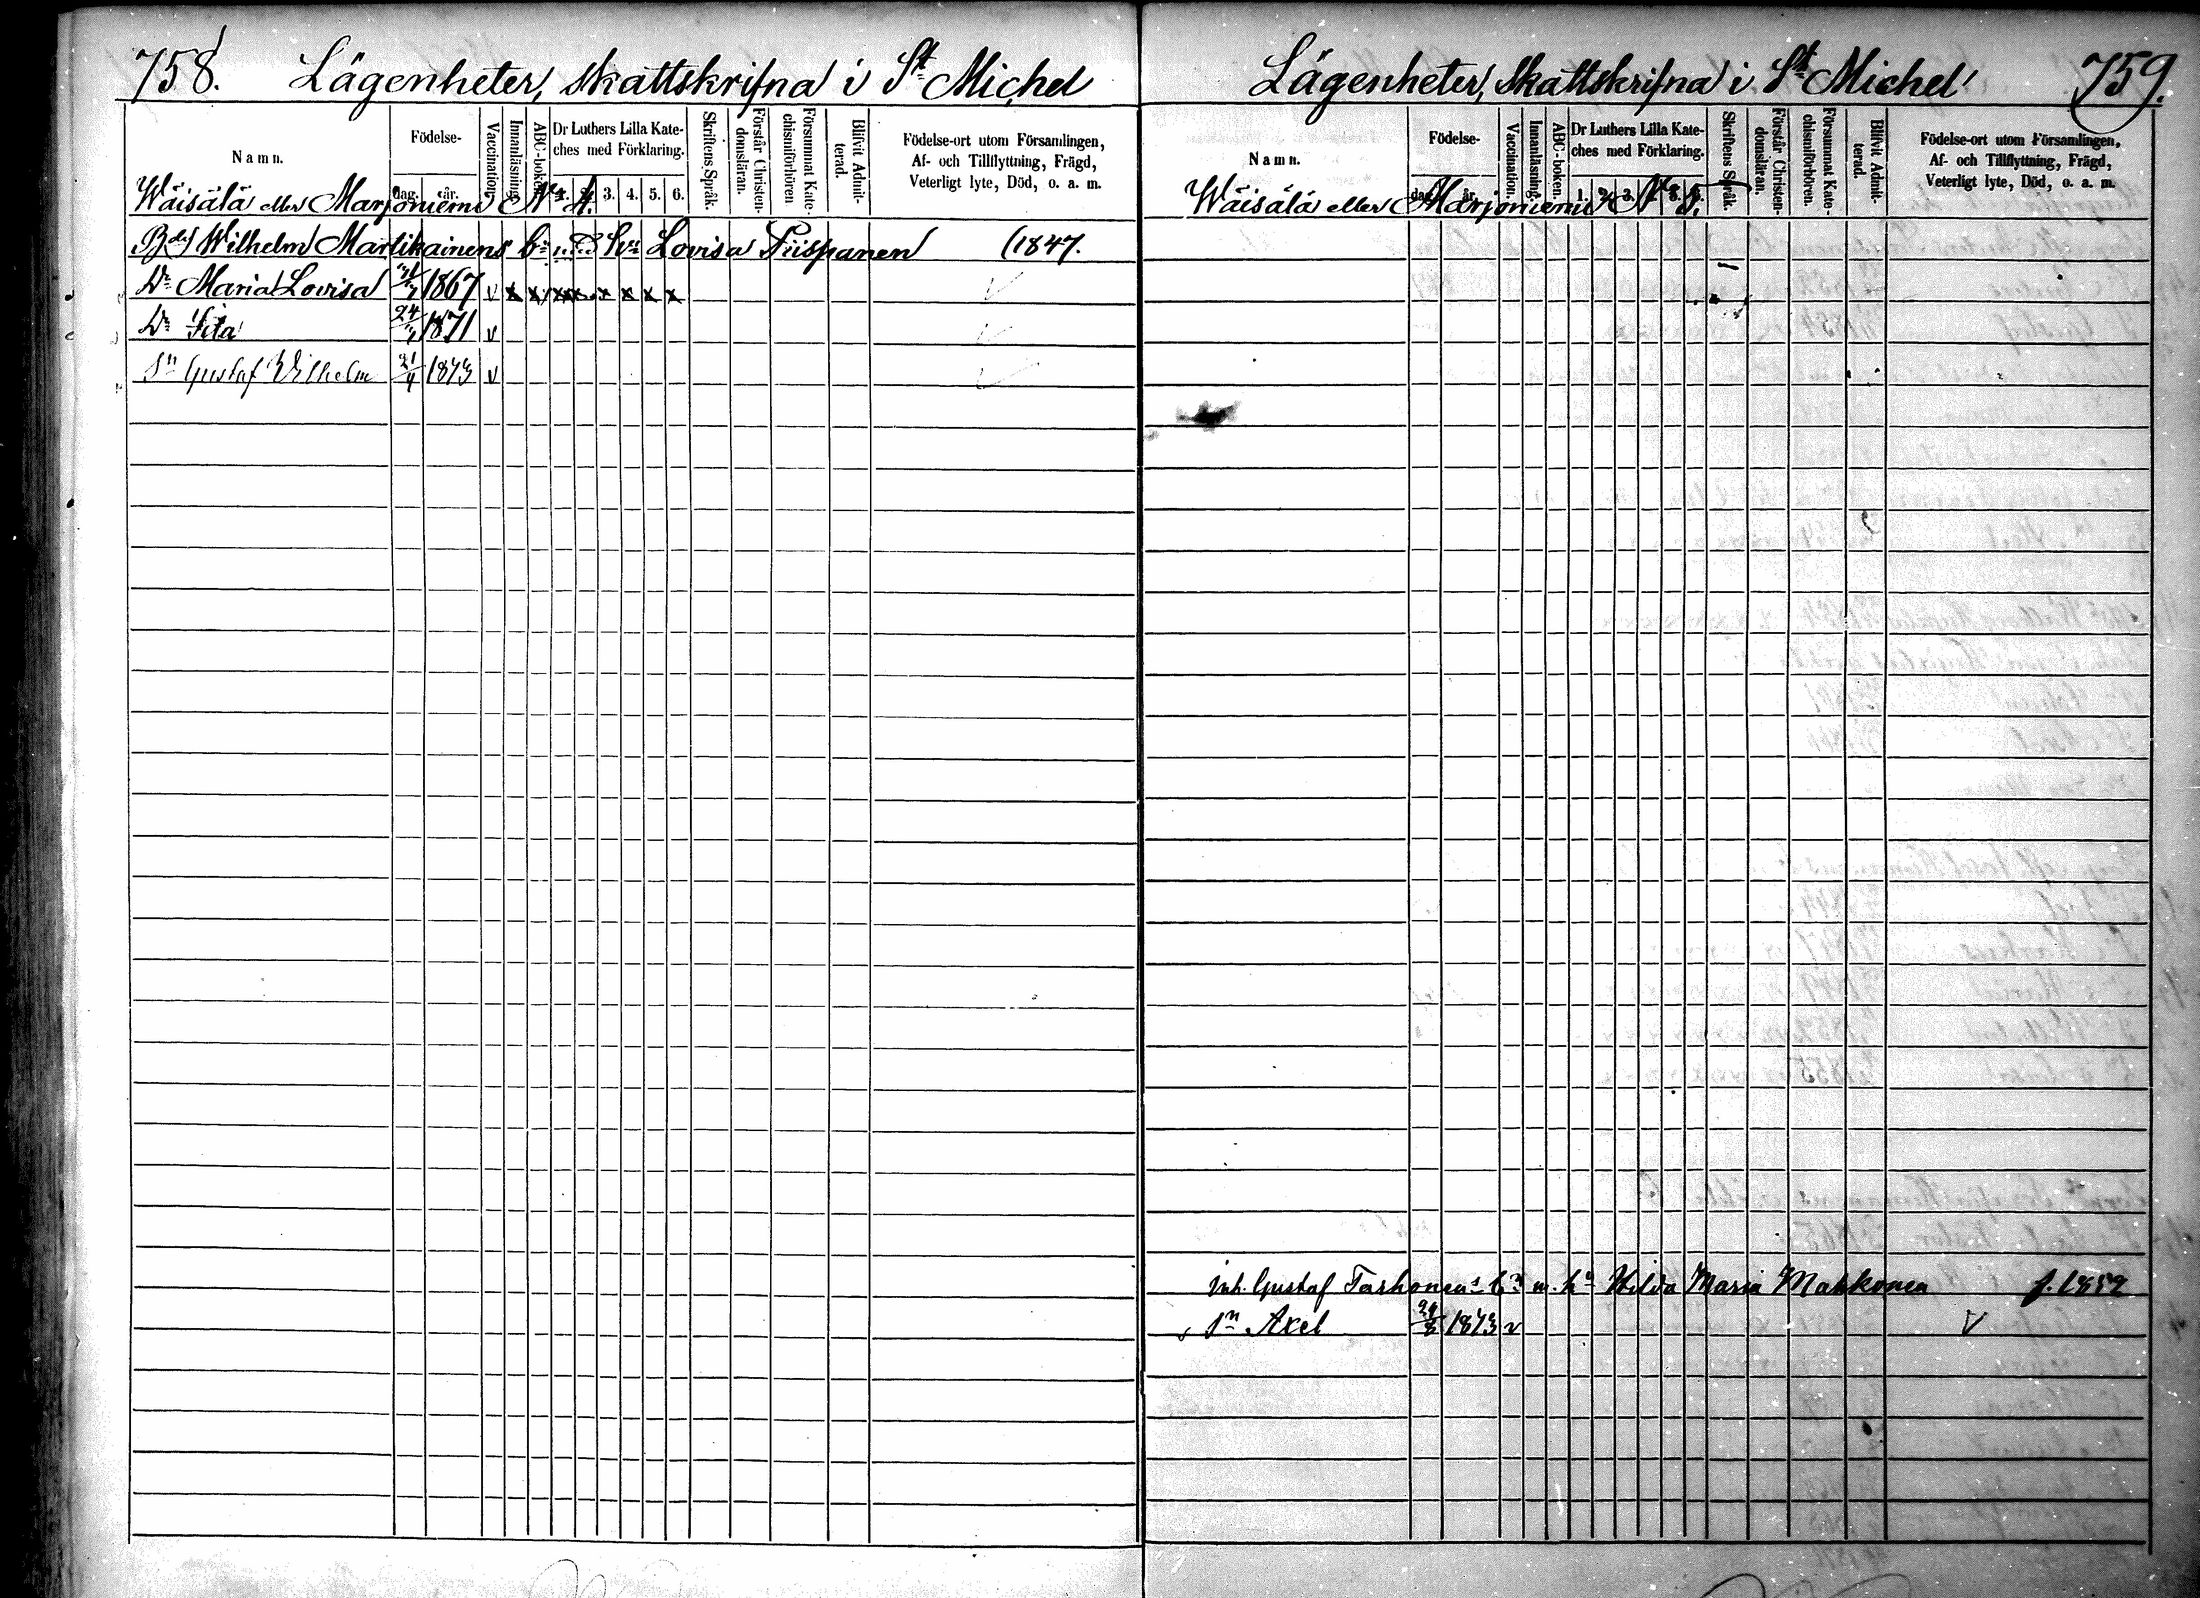 758. Lägenheter, skattskrifna i St Michel
Namn.
Födelse-
dag. år.
Vaccination.
Innanläsning.
ABC-boken.
Dr Luthers Lilla Kate-
ches med Förklaring.
3. 4. 5. 6.
Skriftens Språk.
Förstår Christen-
domsläran.
Försummat Kate-
chismiförhören
Blifvit Admit-
terad.
Födelse-ort utom Församlingen,
Af- och Tillflyttning, Frägd,
Veterligt lyte, Död, o. a. m.
Wäisälä eller Marjoniemi No 4.
Wilhelm Martikainens bn m. hu Lovisa Piispanen (1847.
Dr Maria Lovisa 1867 v x x x x x x x x
Dr 24 1871 v
Sn Gustaf Wilhelm 21/4 1873 v
Lägenheter, skattskrifna i St Michel 759.
Namn.
Födelse-
dag. år.
Vaccination.
Innanläsning.
ABC-boken.
Dr Luthers Lilla Kate-
ches med Förklaring.
1. 2. 3.
Skriftens Språk.
Förstår Christen-
domsläran.
Försummat Kate-
chismiförhören.
Blifvit Admit-
terad.
Födelse-ort utom Församlingen,
Af- och Tillflyttning, Frägd,
Veterligt lyte, Död, o. a. m.
Wäisälä eller Marjoniemi No 5.
inh. Gustaf Tarkonens bn m. hu Hilda Maria Makkonen f. 1852
Sn Axel 29/8 1873 v